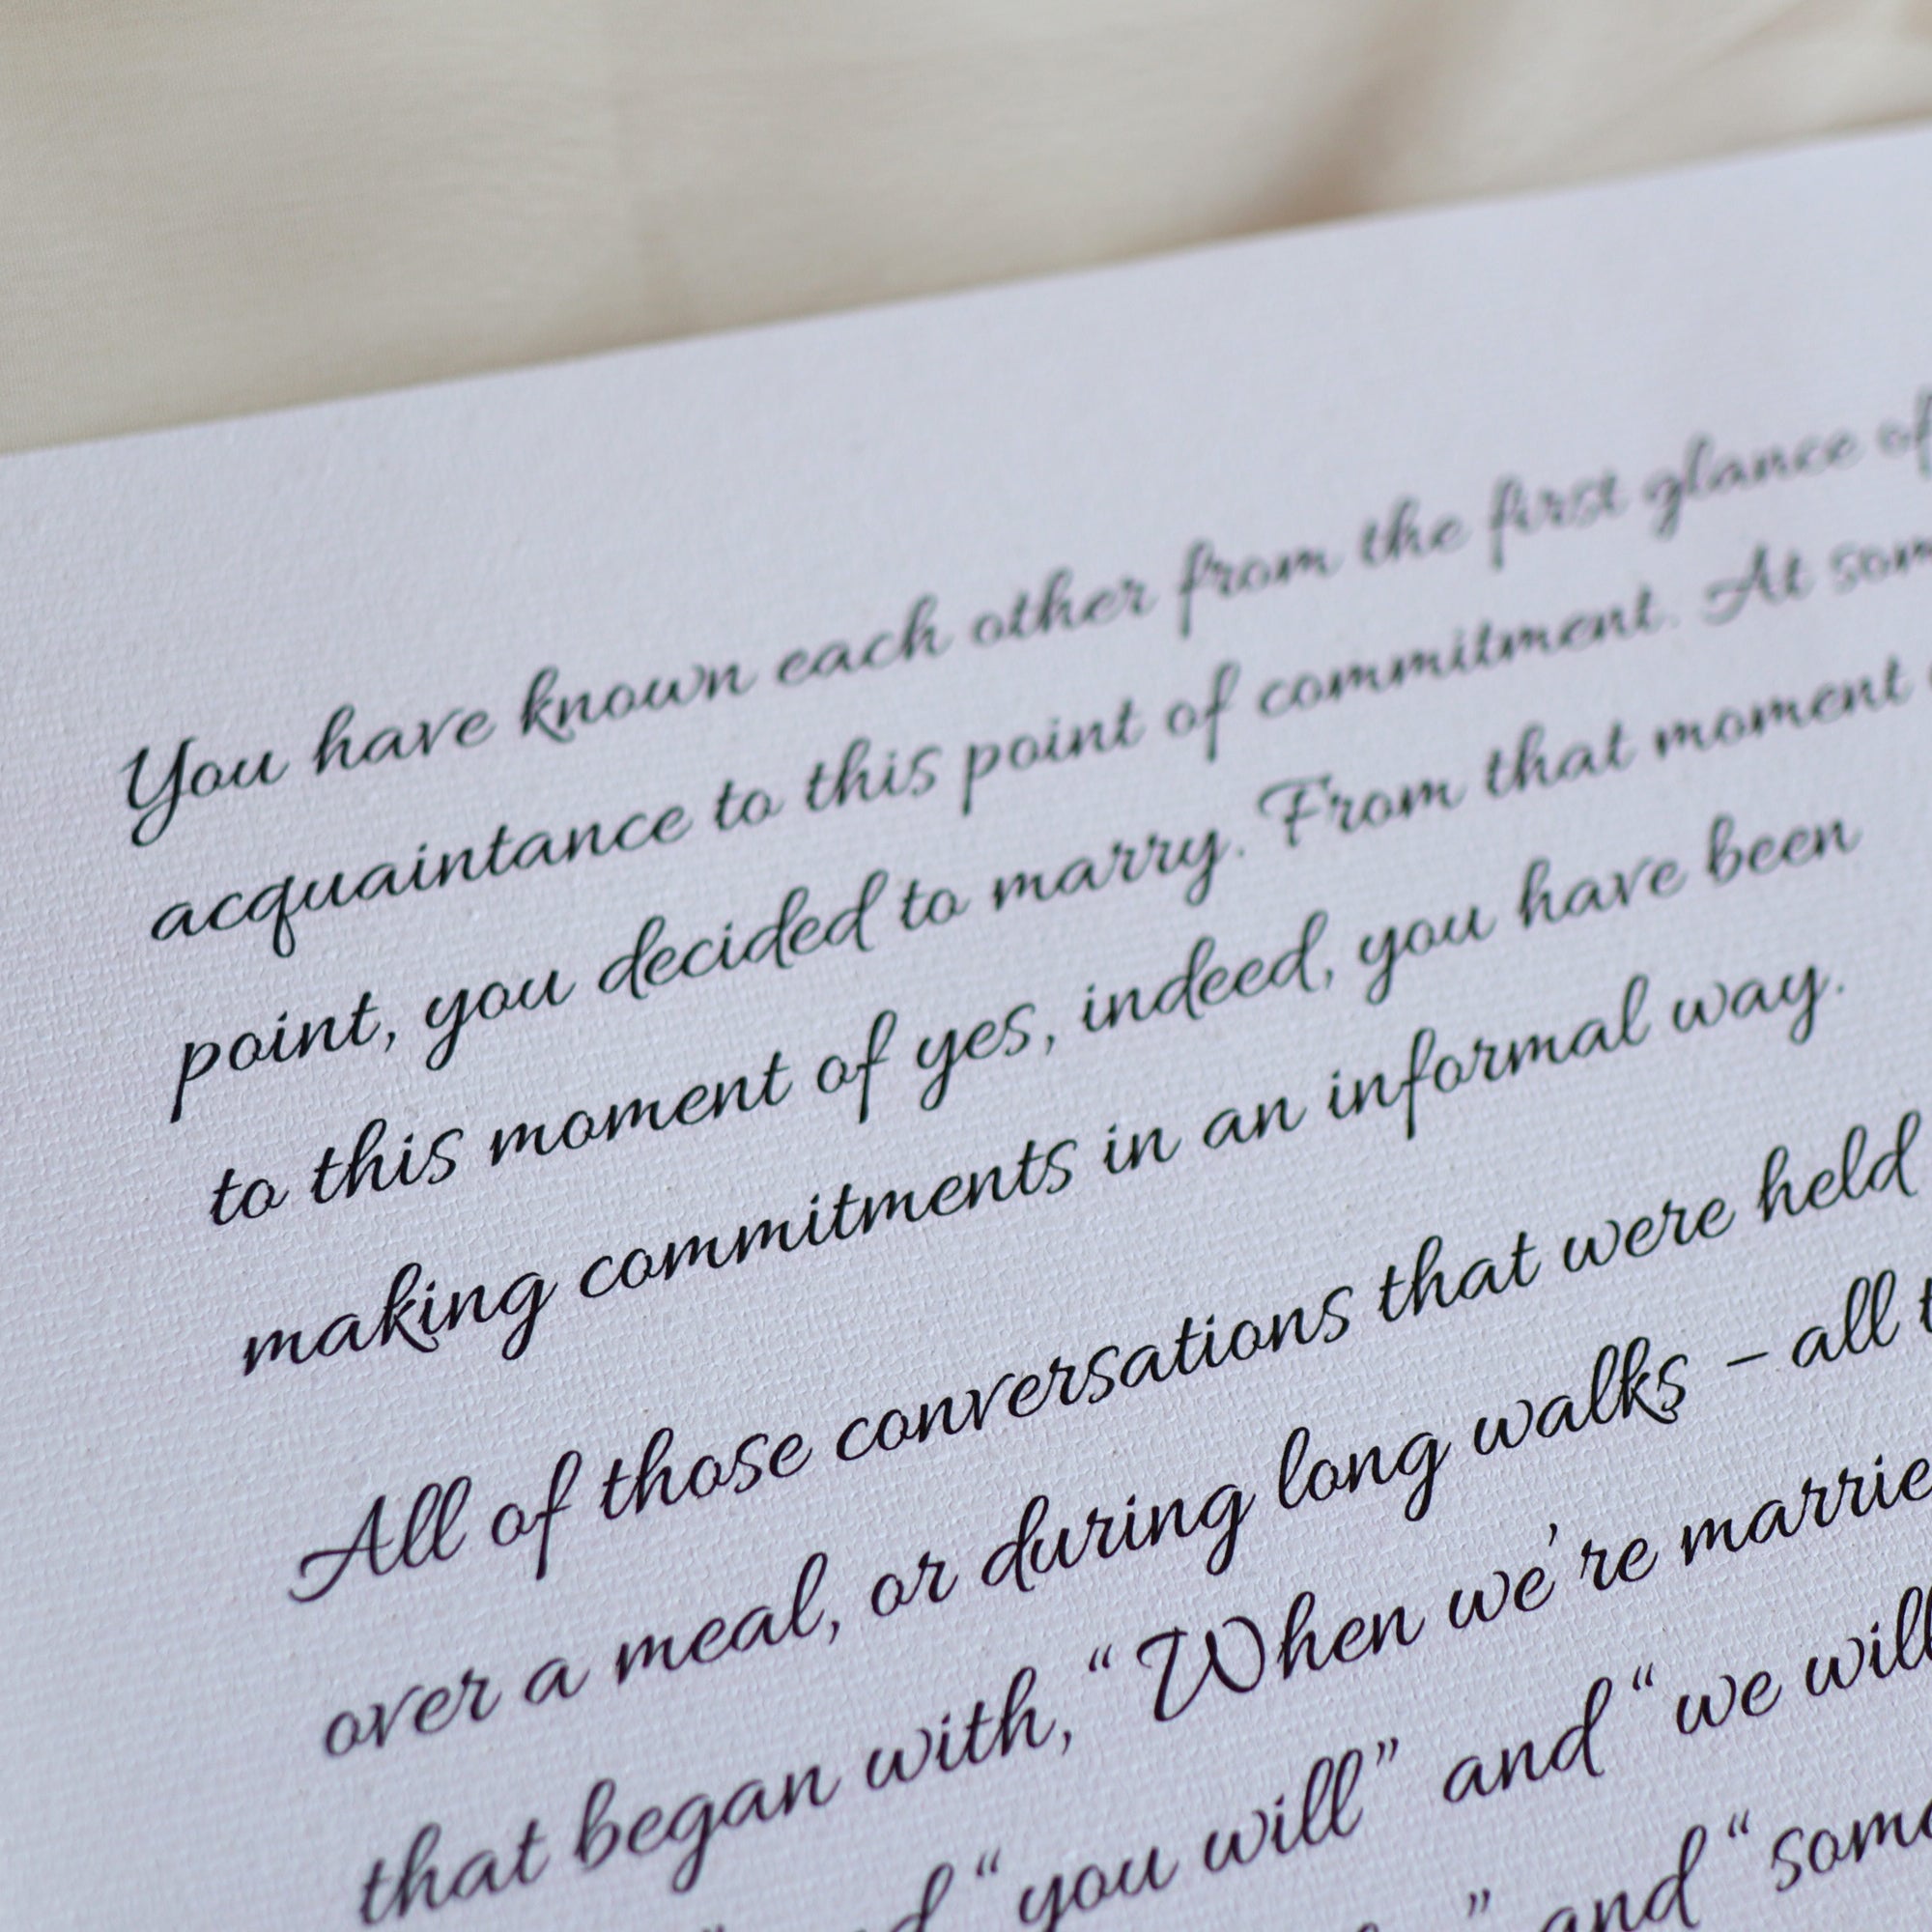 You have known each other from the first glance of
acquaintance to this point of commitment. At
point, you decided to marry. From that moment
to this moment of yes, indeed, you have been
making commitments in an informal way.
All of those conversations that were held
over a meal, or during long walks – all
that began with, “When we're
“you will” and “we will
” and “